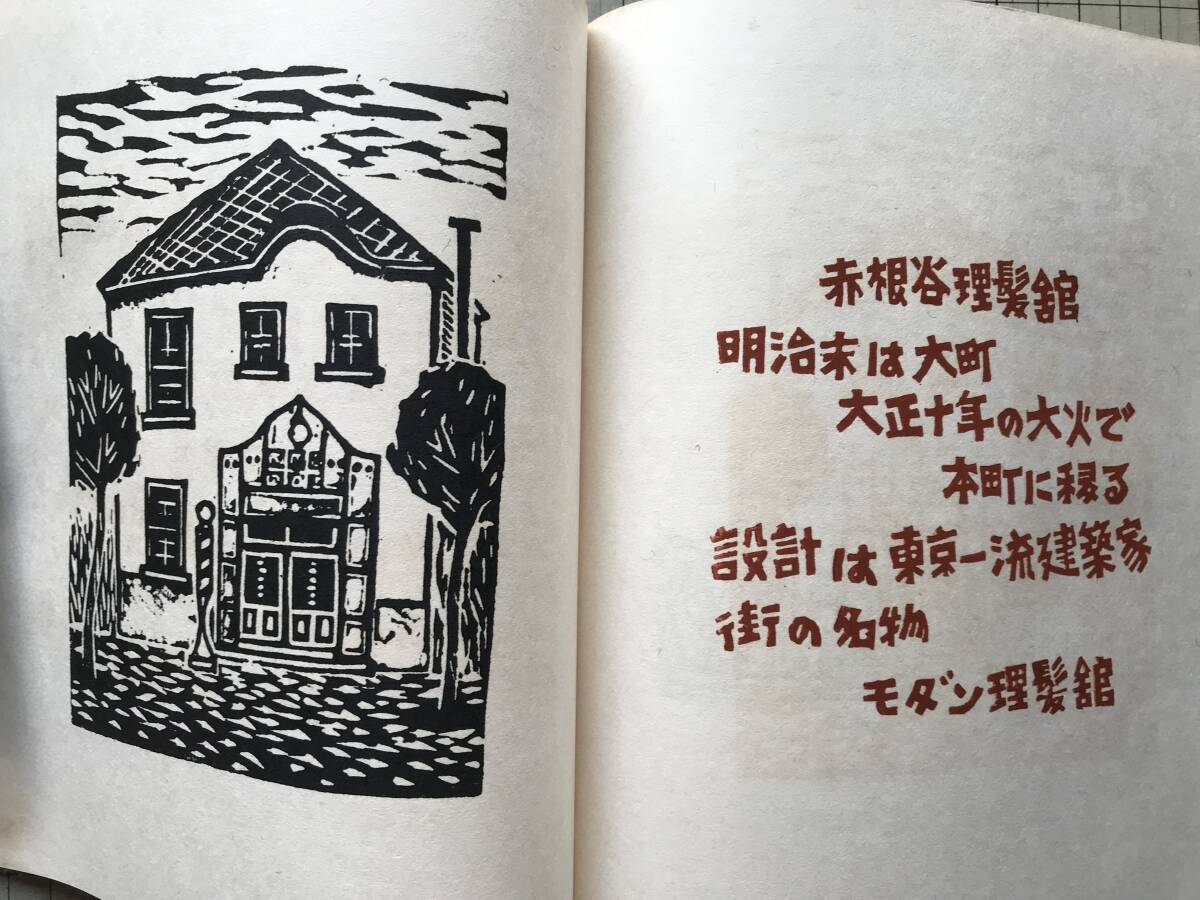 赤根谷理髪舘
明治末は大町
大正十年の大火で
本町に移る
設計は東京一流建築家
街の名物
モダン理髪舘